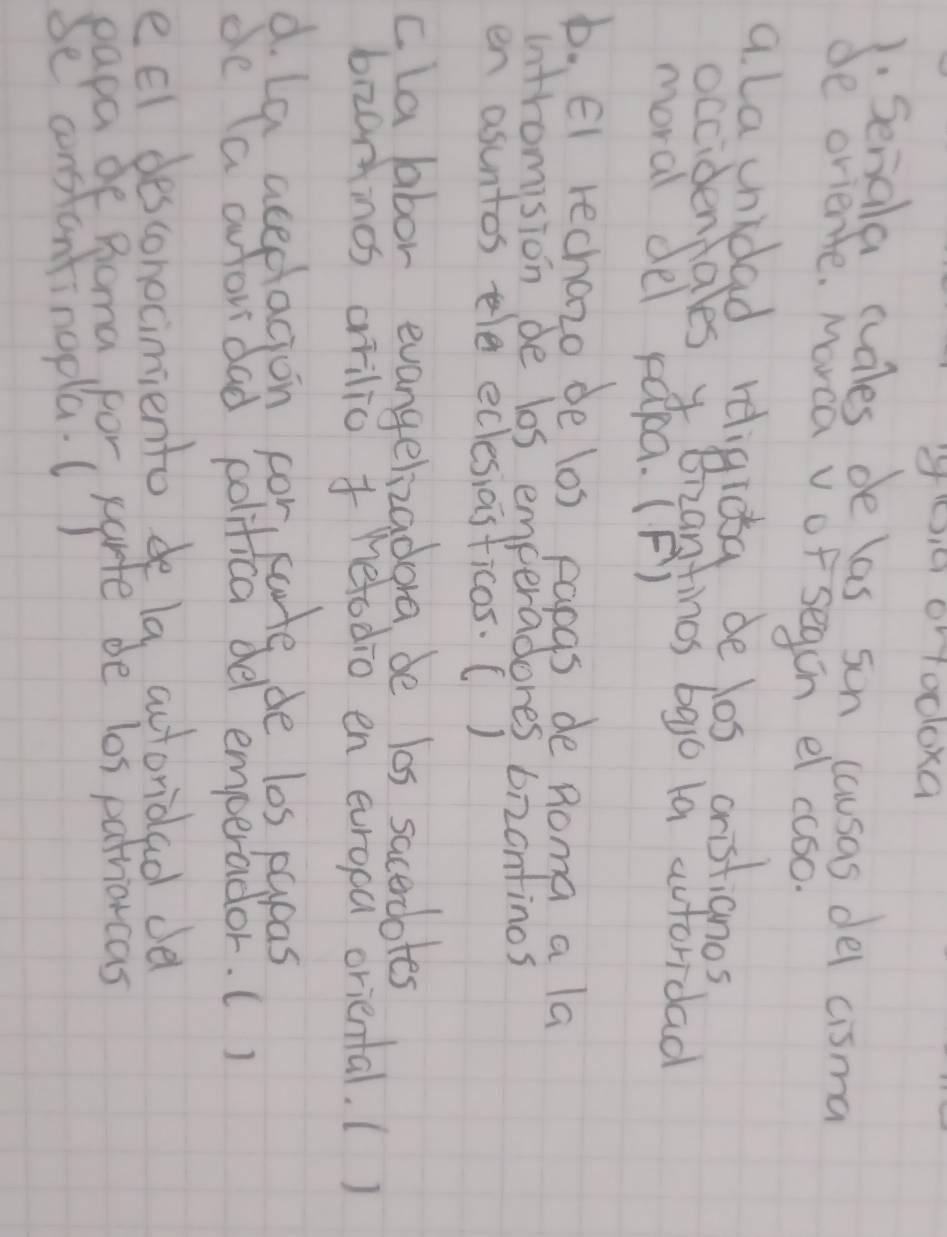 ortodoxa
1. Señala cuáles de las sin causas del cisma
de oriente. Marca v o F según el caso.
a. La unidad religiosa de los cristianos
occidentales y bizantinos bajo la autoridad
moral del papa. (F)
b. El rechazo de los papas de Roma a la
intromisión de los emperadores bizantinos
en asuntos ecleslásticos. ( )
c. La labor evangelizadora de los sacerdotes
bizantinos cirilio y Metodio en europa oriental. ( )
d. La aceptación por parte de los papas
de la autoridad política del emperador. ( )
e. El desconocimiento de la autoridad del
papa de Roma por parte de los patriarcas
de constantinopla. ( )